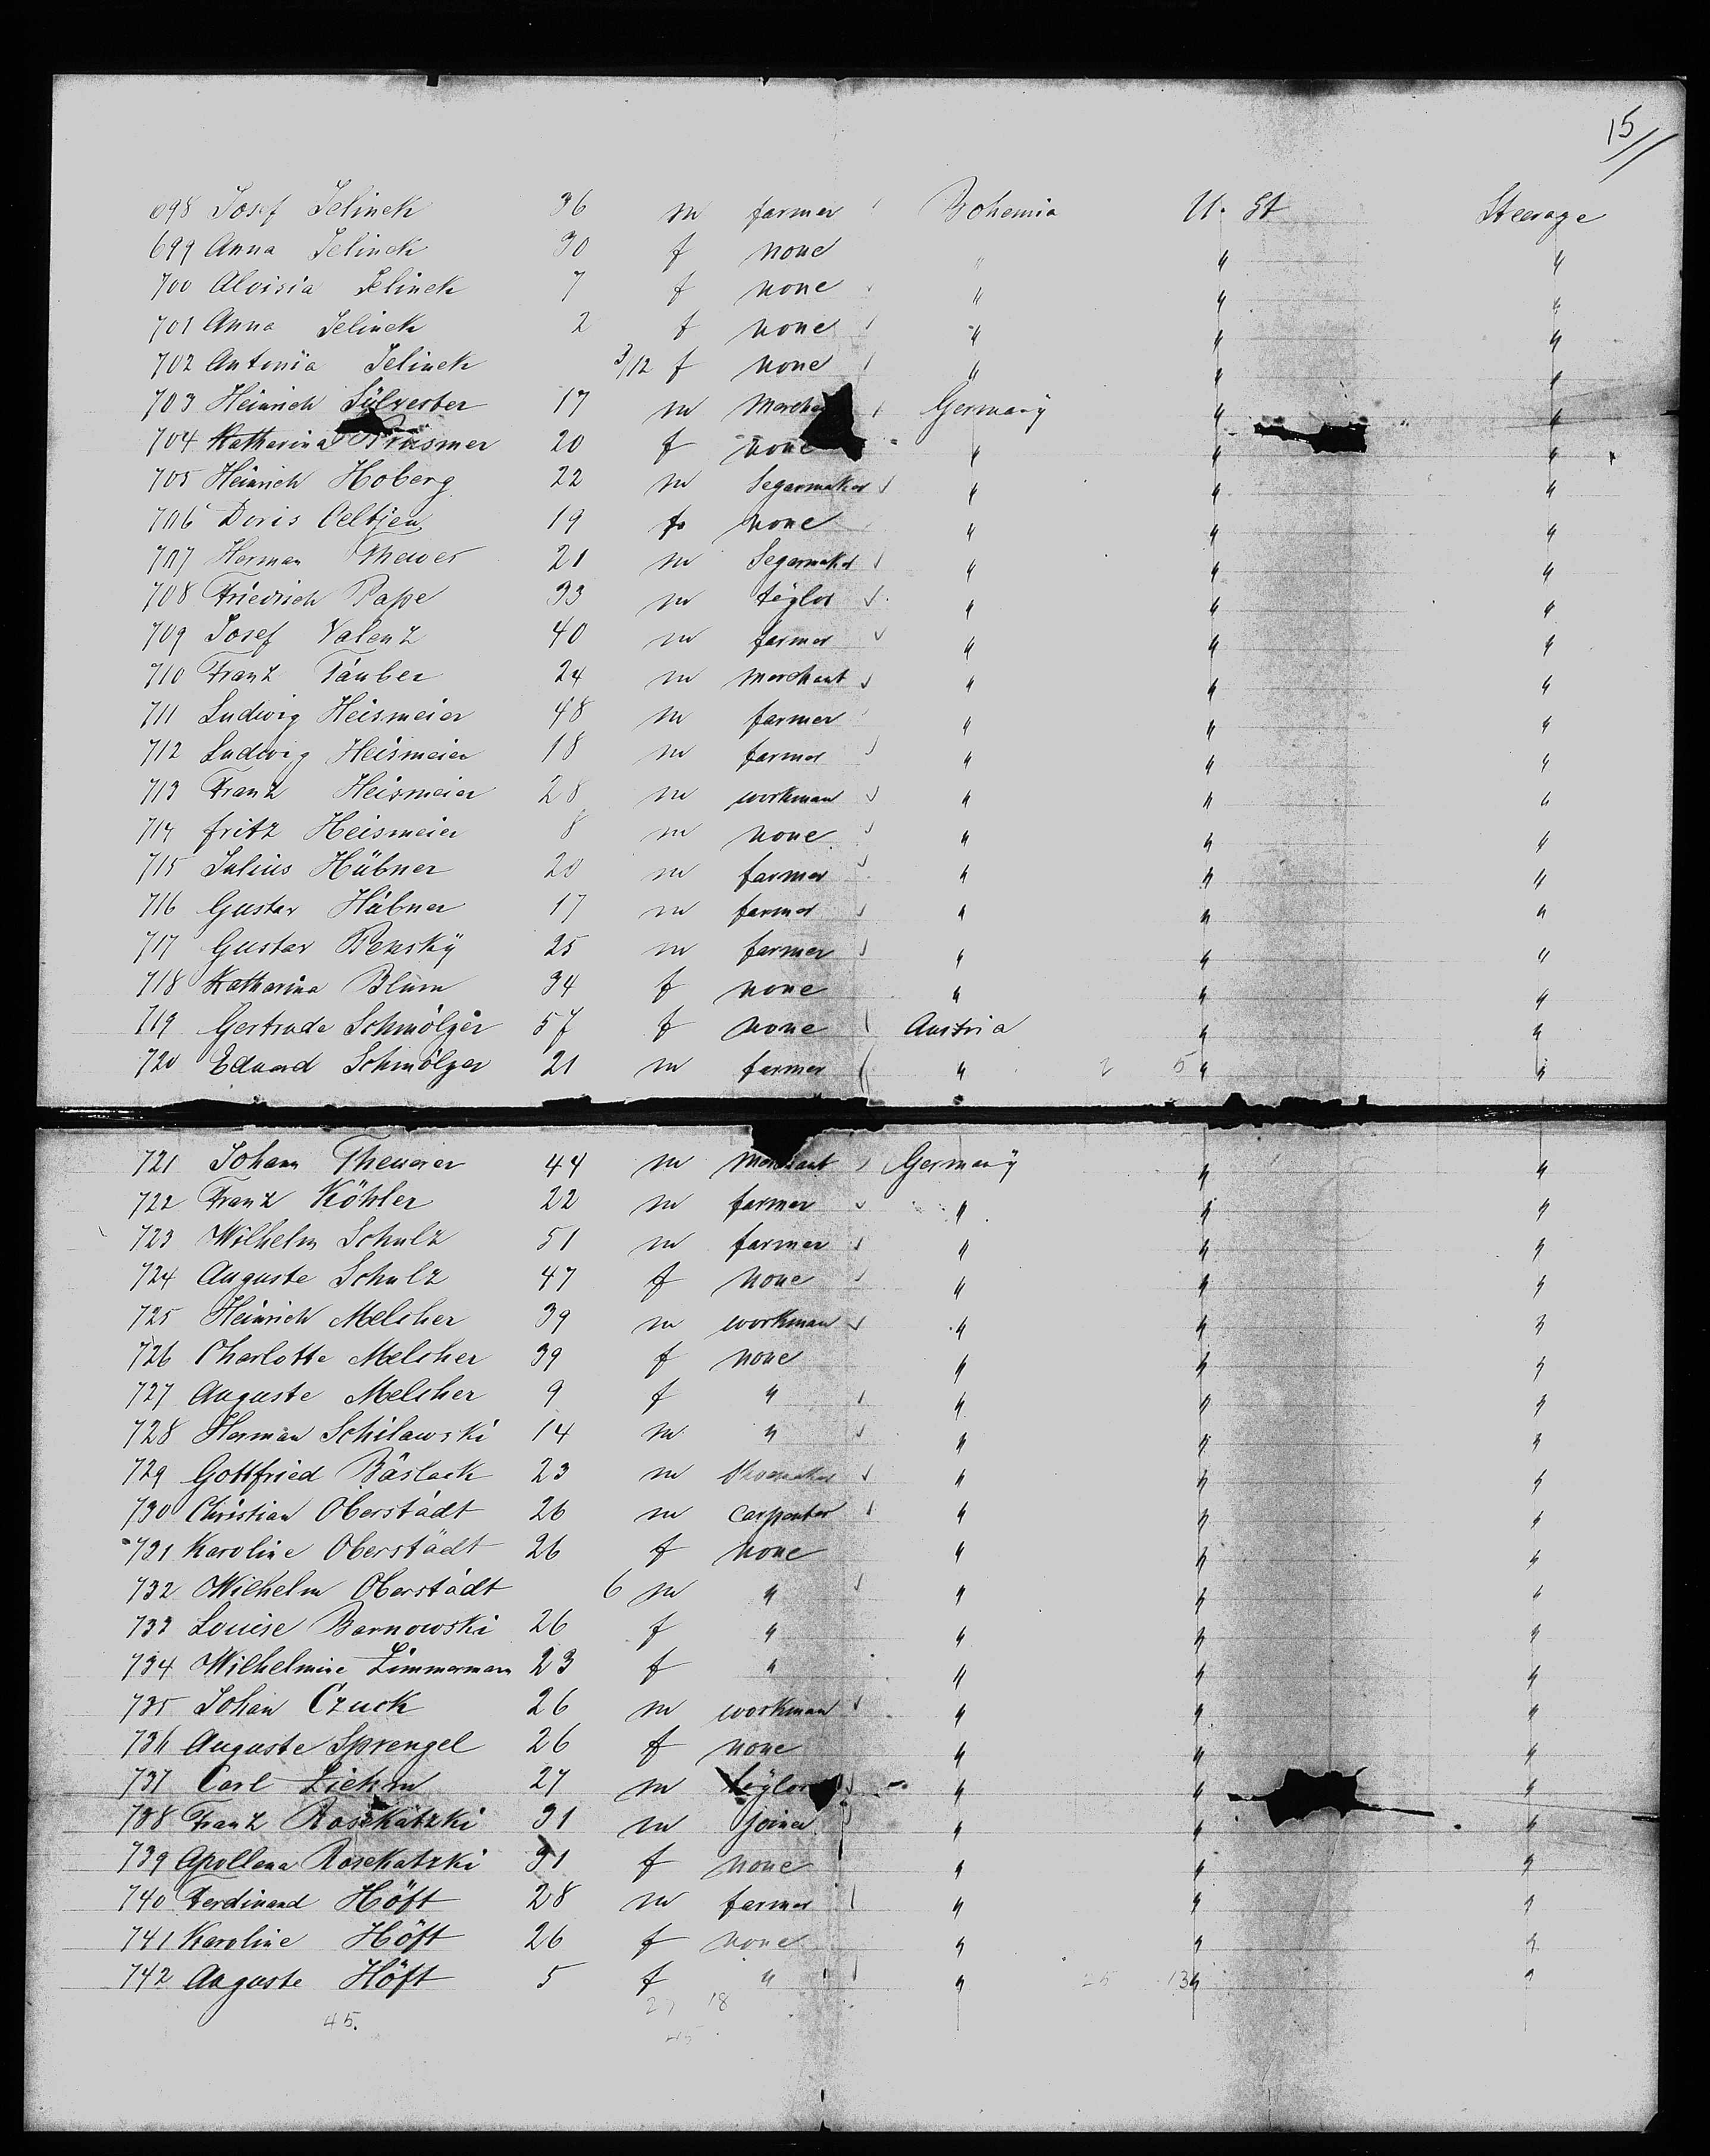 15
698 Josef Jelinek 36 m farmer Bohemia U. St Steerage
699 Anna Jelinek 30 f none " " "
700 Aloisia Jelinek 7 f none " " "
701 Anna Jelinek 2 f none " " "
702 Antonia Jelinek 3/12 f none " " "
703 Heinrich Sülvester 17 m Germany " "
704 Katharina 20 f none " " "
705 Heinrich Hoberg 22 m Segarmaker " " "
706 Doris Oeltjen 19 f none " " "
707 Herman 21 m Segarmaker " " "
708 Friedrich Pape 33 m teylor " " "
709 Josef Valenz 40 m farmer " " "
710 Franz Täuber 24 m merchant " " "
711 Ludwig Heismeier 48 m farmer " " "
712 Ludwig Heismeier 18 m farmer " " "
713 Franz Heismeier 28 m workman " " "
714 fritz Heismeier 8 m none " " "
715 Julius Hübner 20 m farmer " " "
716 Gustav Hübner 17 m farmer " " "
717 Gustav 25 m farmer " " "
718 Katharina Blum 34 f none " " "
719 Gertrude Schmölzer 57 f none Austria " "
720 Eduard Schmölzer 21 m farmer " 2 5 " "
721 Johann Theuerer 44 m Merchant Germany " "
722 Franz Köhler 22 m farmer " " "
723 Wilhelm Schulz 51 m farmer " " "
724 Auguste Schulz 47 f none " " "
725 Heinrich Melcher 39 m workman " " "
726 Charlotte Melcher 39 f none " " "
727 Auguste Melcher 9 f " " " "
728 Herman Schilawski 14 m " " " "
729 Gottfried Bäslack 23 m Shoemaker " " "
730 Christian Oberstädt 26 m carpenter " " "
731 Karoline Oberstädt 26 f none " " "
732 Wilhelm Oberstädt 6 m " " " "
733 Louise Barnowski 26 f " " " "
734 Wilhelmine Zimmermann 23 f " " " "
735 Johan Czuck 26 m workman " " "
736 Auguste Sprengel 26 f none " " "
737 Carl Ziehm 27 m teylor " " "
738 Franz Rosekatzki 31 m joiner " " "
739 Apollena Rosekatzki 31 f none " " "
740 Ferdinand Höft 28 m farmer " " "
741 Karoline Höft 26 f none " " "
742 Auguste Höft 5 f " " " "
45. 27 18
45